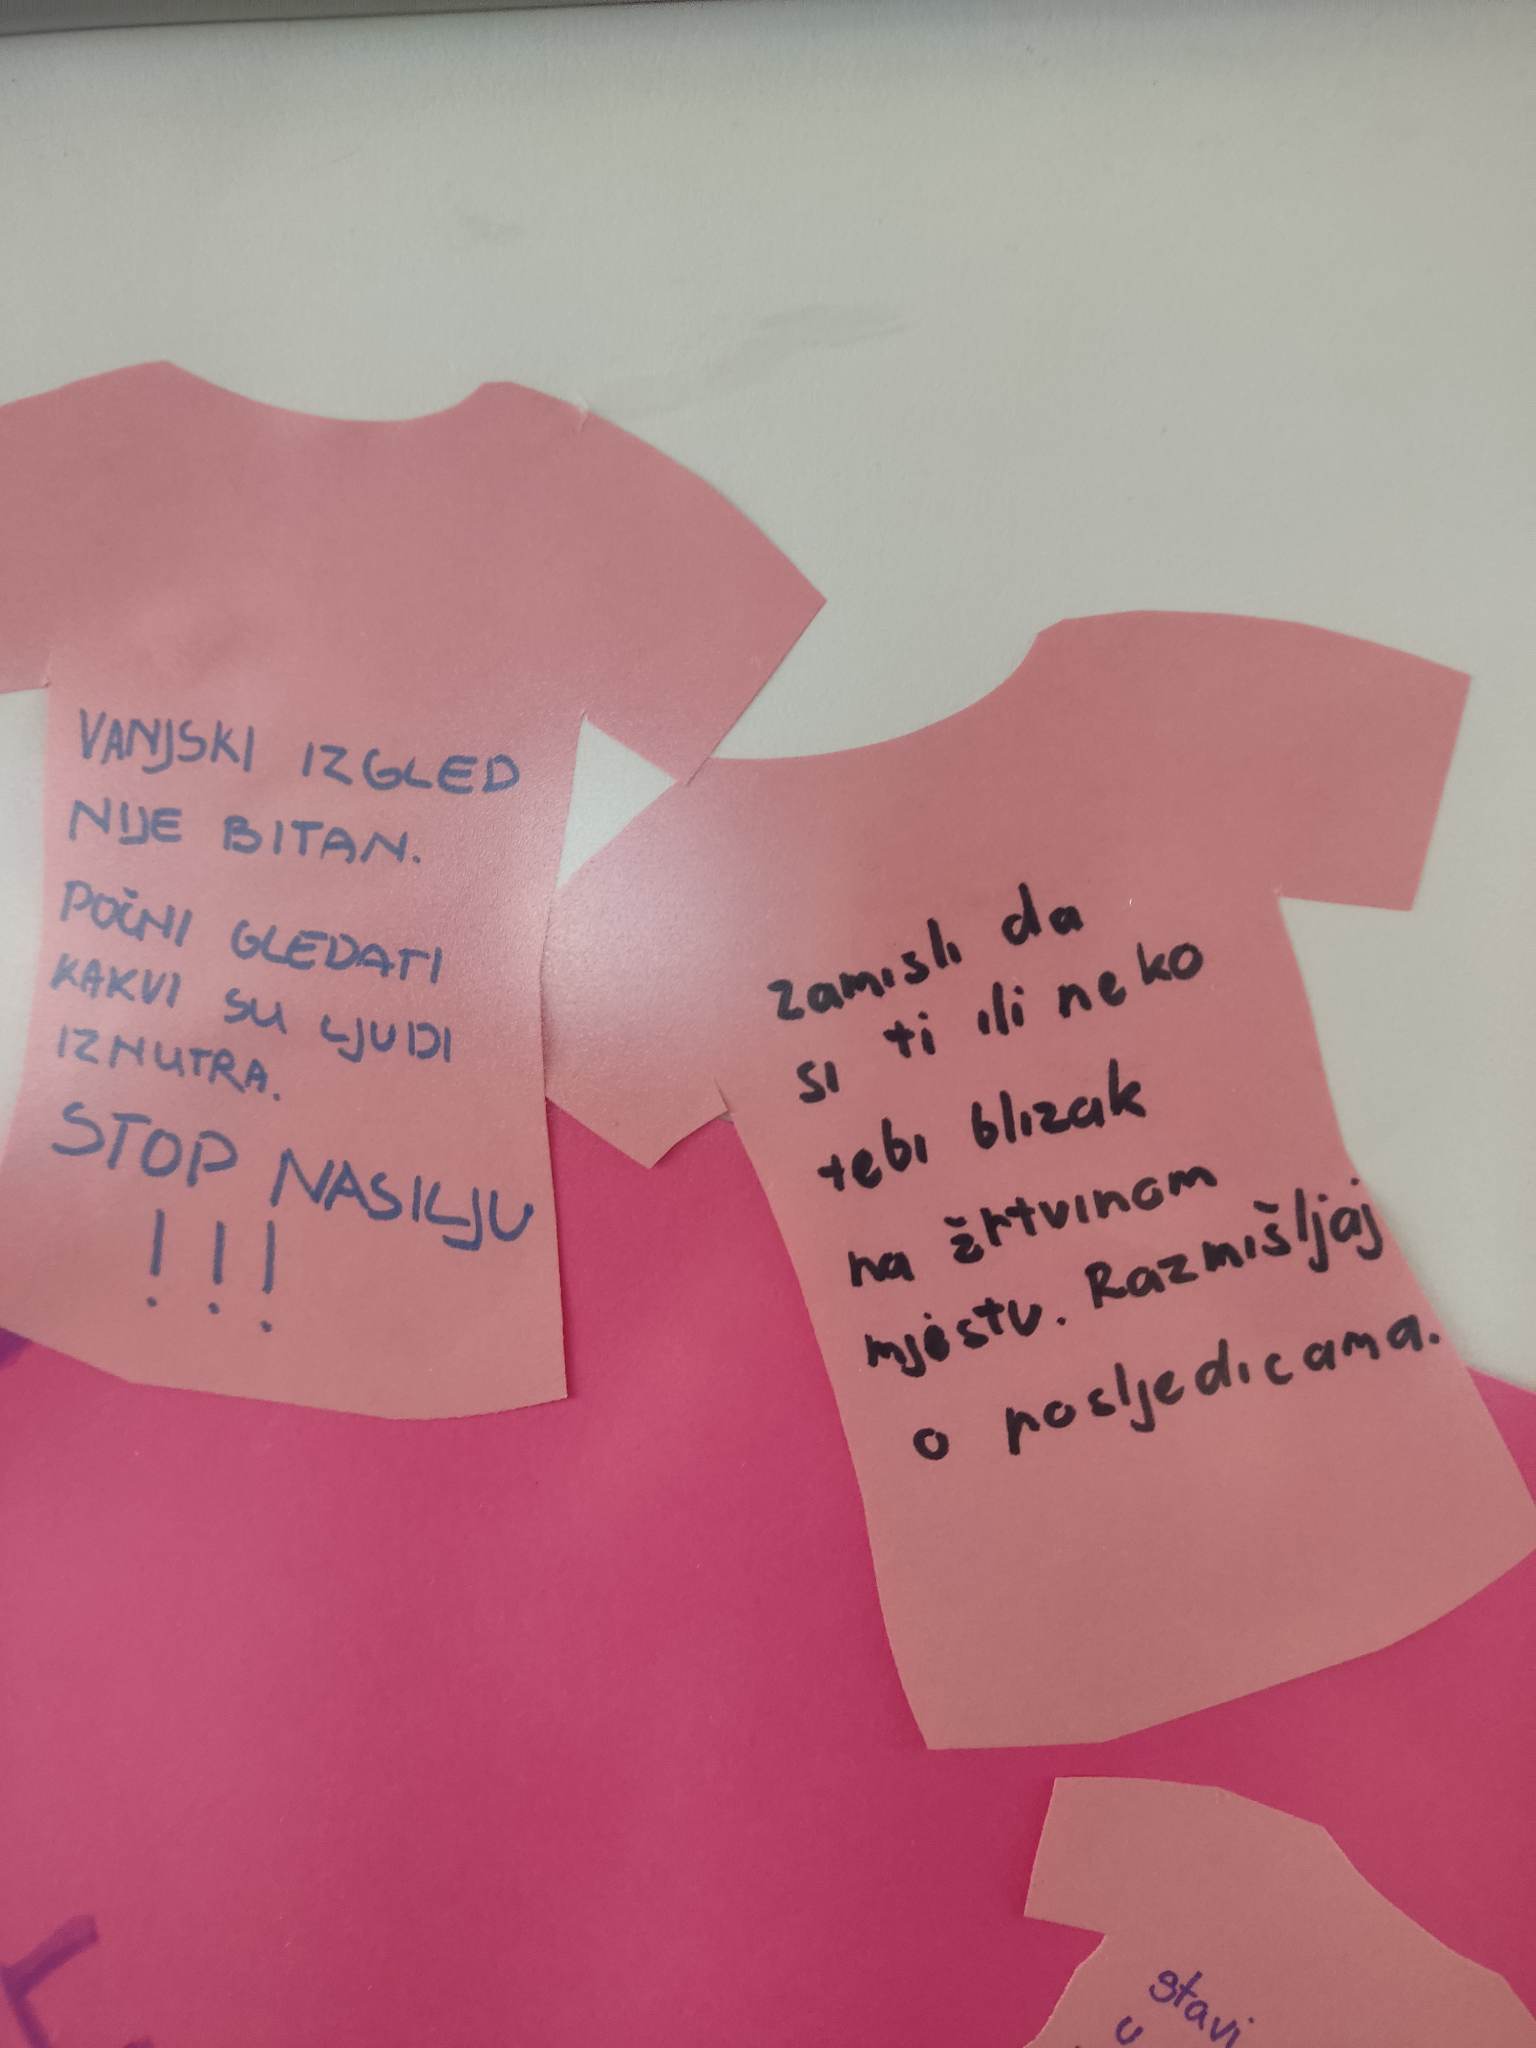 VANJSKI IZGLED
NIJE BITAN.
POČNI GLEDATI
KAKVI SU LJUDI
IZNUTRA.
STOP NASILJU
!!!
zamisli da
si ti ili neko
tebi blizak
na žrtvinom
mjestu. Razmišljaj
o posljedicama.
stavi
u